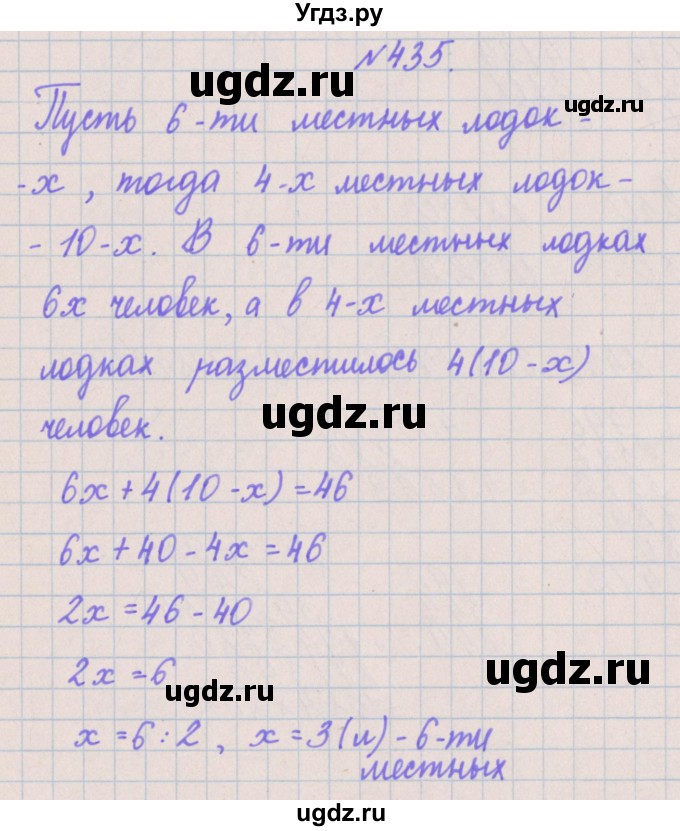 Угдз.ру
№435.
ugdz.ru
ugdz.ru
Пусть 6-ти местных лодок -
- х , тогда 4-х местных лодок -
- 10-х. В 6-ти местных лодках
6х человек, а в 4-х местных
лодках разместилось 4(10-х)
ugdz.ru
человек.
6х+4(10-х)=46
6х+40-4х=46
2х=46-40
ugdz.ru
2х=6
ugdz.ru
х=6:2, х=3(л)-6-ти
местных
ugdz.ru